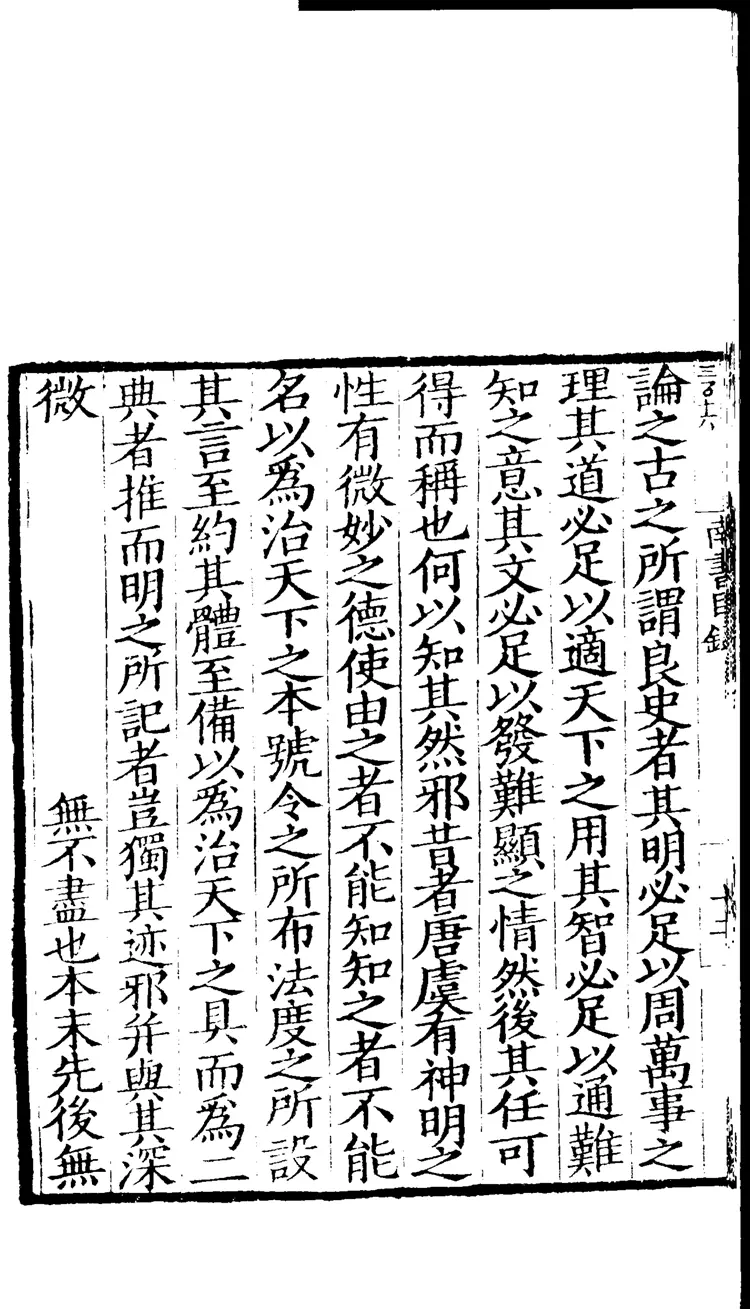 三百十六
南書目錄
十二
論之古之所謂良史者其明必足以周萬事之
理其道必足以適天下之用其智必足以通難
知之意其文必足以發難顯之情然後其任可
得而稱也何以知其然邪昔者唐虞有神明之
性有微妙之德使由之者不能知知之者不能
名以爲治天下之本號令之所布法度之所設
其言至約其體至備以爲治天下之具而爲二
典者推而明之所記者豈獨其迹邪幷與其深
微　無不盡也本末先後無